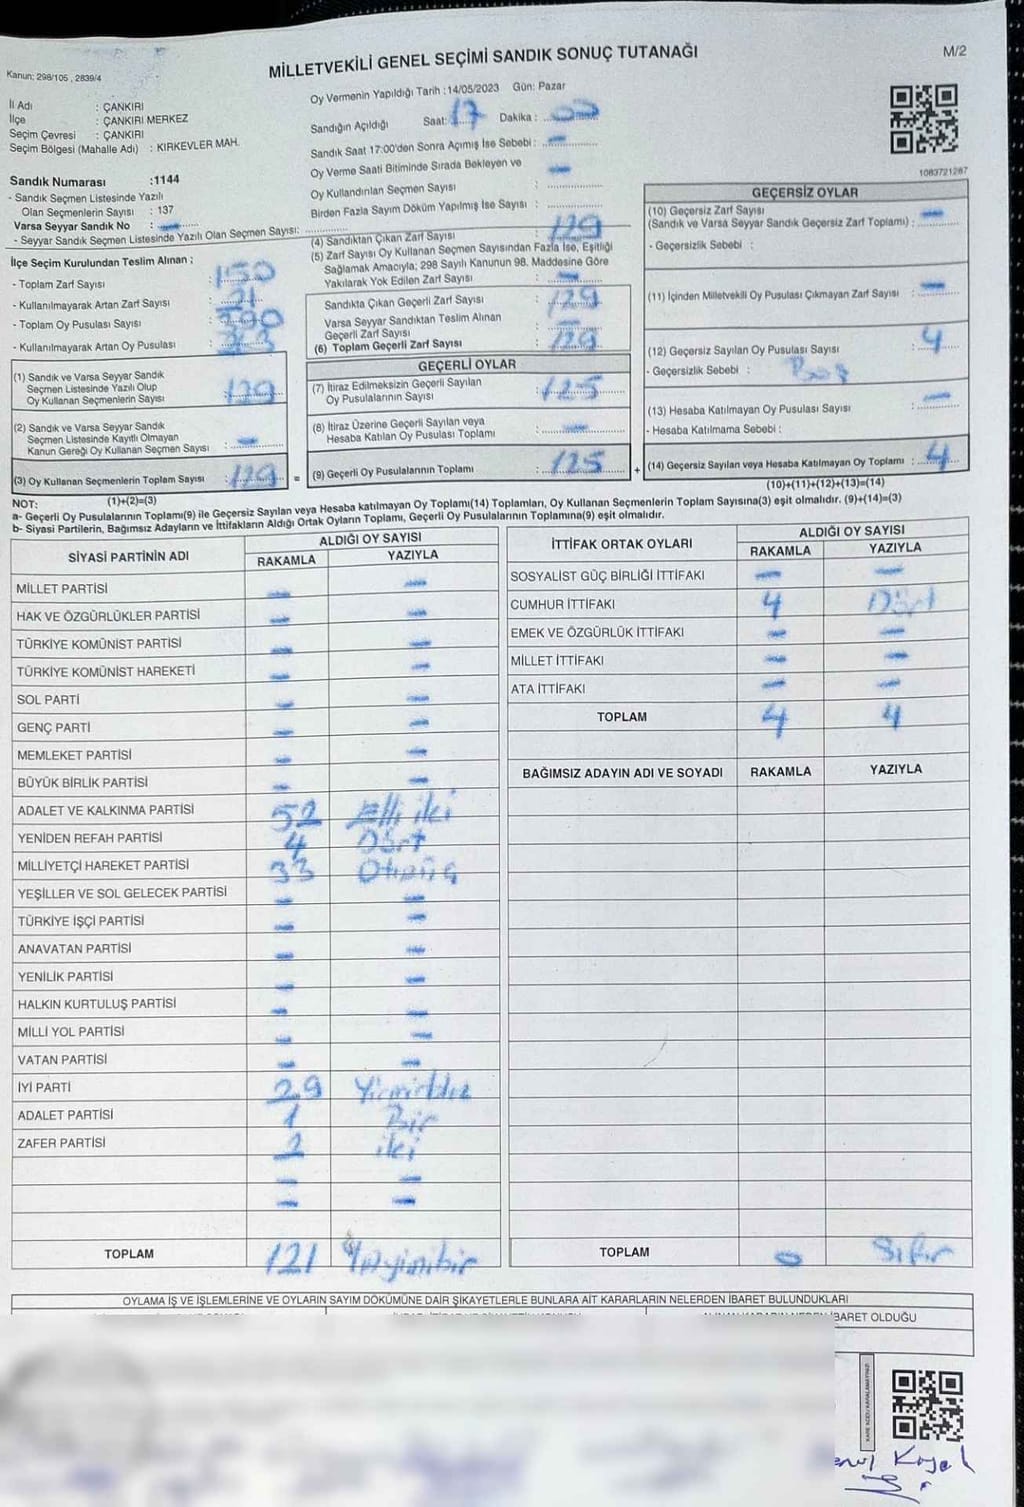 MİLLETVEKİLİ GENEL SEÇİMİ SANDIK SONUÇ TUTANAĞI
M/2
Kanun: 298/105 , 2839/4
İl Adı : ÇANKIRI
İlçe : ÇANKIRI MERKEZ
Seçim Çevresi : ÇANKIRI
Seçim Bölgesi (Mahalle Adı) : KIRKEVLER MAH.
Sandık Numarası :1144
- Sandık Seçmen Listesinde Yazılı
Olan Seçmenlerin Sayısı : 137
Varsa Seyyar Sandık No : -
- Seyyar Sandık Seçmen Listesinde Yazılı Olan Seçmen Sayısı:
Oy Vermenin Yapıldığı Tarih :14/05/2023 Gün: Pazar
Sandığın Açıldığı Saat: 17 Dakika : 00
Sandık Saat 17:00'den Sonra Açımış İse Sebebi : -
Oy Verme Saati Bitiminde Sırada Bekleyen ve
Oy Kullandırılan Seçmen Sayısı : -
Birden Fazla Sayım Döküm Yapılmış İse Sayısı :
1083721287
İlçe Seçim Kurulundan Teslim Alınan ;
- Toplam Zarf Sayısı : 150
- Kullanılmayarak Artan Zarf Sayısı : 21
- Toplam Oy Pusulası Sayısı :
- Kullanılmayarak Artan Oy Pusulası :
(1) Sandık ve Varsa Seyyar Sandık
Seçmen Listesinde Yazılı Olup
Oy Kullanan Seçmenlerin Sayısı : 129
(2) Sandık ve Varsa Seyyar Sandık
Seçmen Listesinde Kayıtlı Olmayan
Kanun Gereği Oy Kullanan Seçmen Sayısı : -
(3) Oy Kullanan Seçmenlerin Toplam Sayısı : 129
(4) Sandıktan Çıkan Zarf Sayısı : 129
(5) Zarf Sayısı Oy Kullanan Seçmen Sayısından Fazla İse, Eşitliği
Sağlamak Amacıyla; 298 Sayılı Kanunun 98. Maddesine Göre
Yakılarak Yok Edilen Zarf Sayısı : -
Sandıkta Çıkan Geçerli Zarf Sayısı : 129
Varsa Seyyar Sandıktan Teslim Alınan
Geçerli Zarf Sayısı : -
(6) Toplam Geçerli Zarf Sayısı : 129
GEÇERLİ OYLAR
(7) İtiraz Edilmeksizin Geçerli Sayılan
Oy Pusulalarının Sayısı : 125
(8) İtiraz Üzerine Geçerli Sayılan veya
Hesaba Katılan Oy Pusulası Toplamı : -
(9) Geçerli Oy Pusulalarının Toplamı : 125
GEÇERSİZ OYLAR
(10) Geçersiz Zarf Sayısı
(Sandık ve Varsa Seyyar Sandık Geçersiz Zarf Toplamı) : -
- Geçersizlik Sebebi :
(11) İçinden Milletvekili Oy Pusulası Çıkmayan Zarf Sayısı : -
(12) Geçersiz Sayılan Oy Pusulası Sayısı : 4
- Geçersizlik Sebebi : Boş
(13) Hesaba Katılmayan Oy Pusulası Sayısı : -
- Hesaba Katılmama Sebebi :
(14) Geçersiz Sayılan veya Hesaba Katılmayan Oy Toplamı : 4
= +
(1)+(2)=(3)
(10)+(11)+(12)+(13)=(14)
NOT:
a- Geçerli Oy Pusulalarının Toplamı(9) ile Geçersiz Sayılan veya Hesaba katılmayan Oy Toplamı(14) Toplamları, Oy Kullanan Seçmenlerin Toplam Sayısına(3) eşit olmalıdır. (9)+(14)=(3)
b- Siyasi Partilerin, Bağımsız Adayların ve İttifakların Aldığı Ortak Oyların Toplamı, Geçerli Oy Pusulalarının Toplamına(9) eşit olmalıdır.
SİYASİ PARTİNİN ADI
ALDIĞI OY SAYISI
RAKAMLA YAZIYLA
MİLLET PARTİSİ - -
HAK VE ÖZGÜRLÜKLER PARTİSİ - -
TÜRKİYE KOMÜNİST PARTİSİ - -
TÜRKİYE KOMÜNİST HAREKETİ - -
SOL PARTİ - -
GENÇ PARTİ - -
MEMLEKET PARTİSİ - -
BÜYÜK BİRLİK PARTİSİ - -
ADALET VE KALKINMA PARTİSİ 52 Elli iki
YENİDEN REFAH PARTİSİ 4 Dört
MİLLİYETÇİ HAREKET PARTİSİ 33 Otuzüç
YEŞİLLER VE SOL GELECEK PARTİSİ - -
TÜRKİYE İŞÇİ PARTİSİ - -
ANAVATAN PARTİSİ - -
YENİLİK PARTİSİ - -
HALKIN KURTULUŞ PARTİSİ - -
MİLLİ YOL PARTİSİ - -
VATAN PARTİSİ - -
İYİ PARTİ 29 Yirmidokuz
ADALET PARTİSİ 1 Bir
ZAFER PARTİSİ 2 iki
- -
- -
TOPLAM 121 Yüzyirmibir
İTTİFAK ORTAK OYLARI
ALDIĞI OY SAYISI
RAKAMLA YAZIYLA
SOSYALİST GÜÇ BİRLİĞİ İTTİFAKI - -
CUMHUR İTTİFAKI 4 Dört
EMEK VE ÖZGÜRLÜK İTTİFAKI - -
MİLLET İTTİFAKI - -
ATA İTTİFAKI - -
TOPLAM 4 4
BAĞIMSIZ ADAYIN ADI VE SOYADI RAKAMLA YAZIYLA
TOPLAM 0 Sıfır
OYLAMA İŞ VE İŞLEMLERİNE VE OYLARIN SAYIM DÖKÜMÜNE DAİR ŞİKAYETLERLE BUNLARA AİT KARARLARIN NELERDEN İBARET BULUNDUKLARI
İBARET OLDUĞU